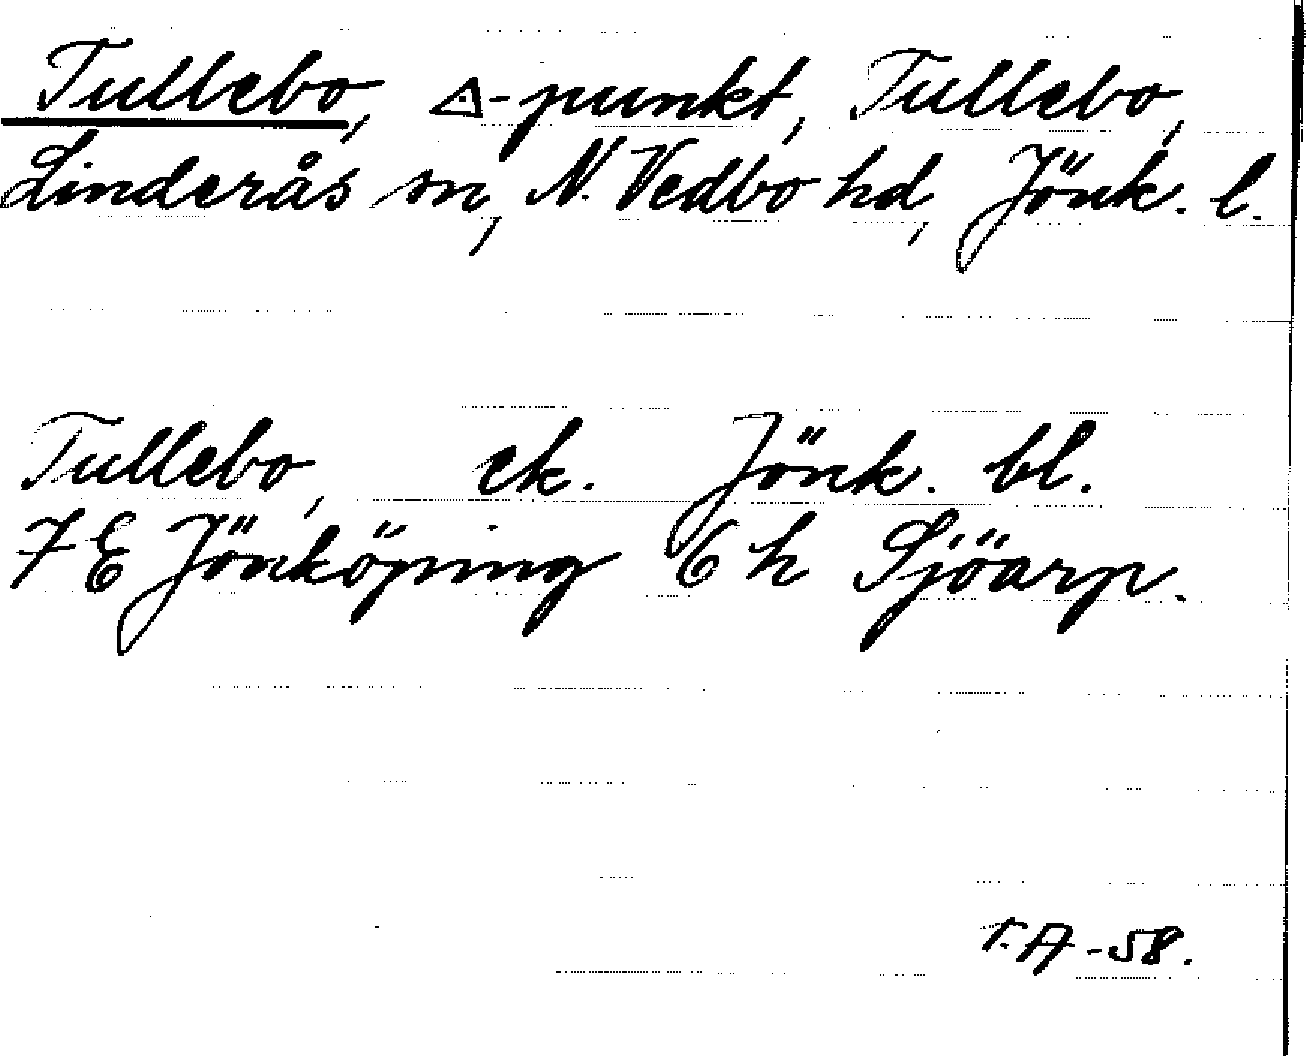 Tullebo, △-punkt, Tullebo,
Linderås sn, N. Vedbo hd, Jönk. l.
Tullebo, ek. Jönk. bl.
7E Jönköping 6 h Sjöarp.
T.A -58.